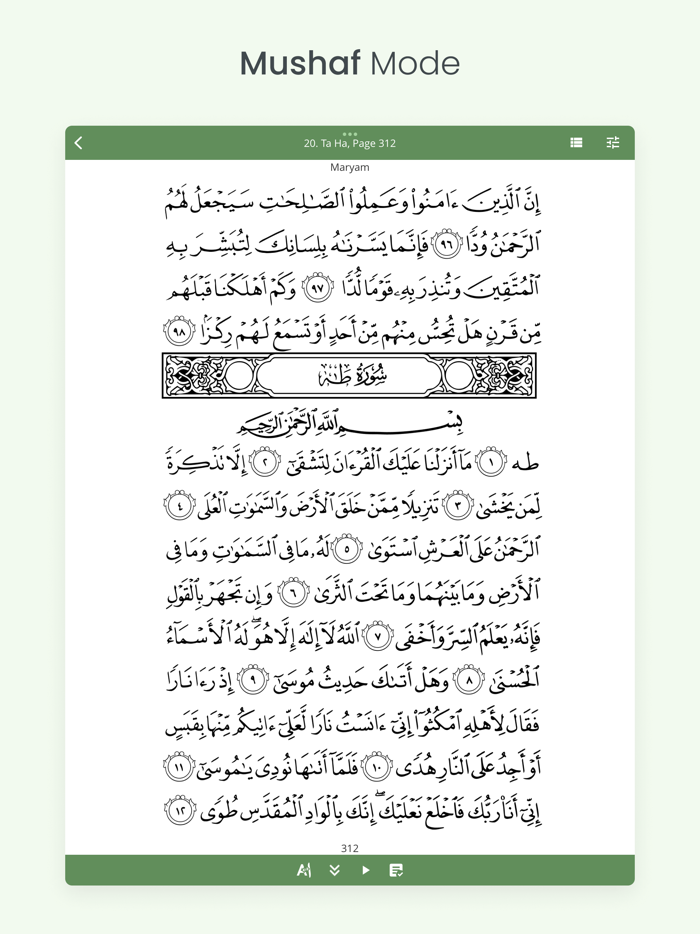 Mushaf Mode
20. Ta Ha, Page 312
Maryam
إِنَّ ٱلَّذِينَ ءَامَنُوا۟ وَعَمِلُوا۟ ٱلصَّـٰلِحَـٰتِ سَيَجْعَلُ لَهُمُ
ٱلرَّحْمَـٰنُ وُدًّا ٩٦ فَإِنَّمَا يَسَّرْنَـٰهُ بِلِسَانِكَ لِتُبَشِّرَ بِهِ
ٱلْمُتَّقِينَ وَتُنذِرَ بِهِۦ قَوْمًا لُّدًّا ٩٧ وَكَمْ أَهْلَكْنَا قَبْلَهُم
مِّن قَرْنٍ هَلْ تُحِسُّ مِنْهُم مِّنْ أَحَدٍ أَوْ تَسْمَعُ لَهُمْ رِكْزًۢا ٩٨
سُورَةُ طه
بِسْمِ ٱللَّهِ ٱلرَّحْمَـٰنِ ٱلرَّحِيمِ
طه ١ مَآ أَنزَلْنَا عَلَيْكَ ٱلْقُرْءَانَ لِتَشْقَىٰٓ ٢ إِلَّا تَذْكِرَةً
لِّمَن يَخْشَىٰ ٣ تَنزِيلًا مِّمَّنْ خَلَقَ ٱلْأَرْضَ وَٱلسَّمَـٰوَٰتِ ٱلْعُلَى ٤
ٱلرَّحْمَـٰنُ عَلَى ٱلْعَرْشِ ٱسْتَوَىٰ ٥ لَهُۥ مَا فِى ٱلسَّمَـٰوَٰتِ وَمَا فِى
ٱلْأَرْضِ وَمَا بَيْنَهُمَا وَمَا تَحْتَ ٱلثَّرَىٰ ٦ وَإِن تَجْهَرْ بِٱلْقَوْلِ
فَإِنَّهُۥ يَعْلَمُ ٱلسِّرَّ وَأَخْفَى ٧ ٱللَّهُ لَآ إِلَـٰهَ إِلَّا هُوَ ۖ لَهُ ٱلْأَسْمَآءُ
ٱلْحُسْنَىٰ ٨ وَهَلْ أَتَىٰكَ حَدِيثُ مُوسَىٰٓ ٩ إِذْ رَءَا نَارًا
فَقَالَ لِأَهْلِهِ ٱمْكُثُوٓا۟ إِنِّىٓ ءَانَسْتُ نَارًا لَّعَلِّىٓ ءَاتِيكُم مِّنْهَا بِقَبَسٍ
أَوْ أَجِدُ عَلَى ٱلنَّارِ هُدًى ١٠ فَلَمَّآ أَتَىٰهَا نُودِىَ يَـٰمُوسَىٰٓ ١١
إِنِّىٓ أَنَا۠ رَبُّكَ فَٱخْلَعْ نَعْلَيْكَ ۖ إِنَّكَ بِٱلْوَادِ ٱلْمُقَدَّسِ طُوًى ١٢
312